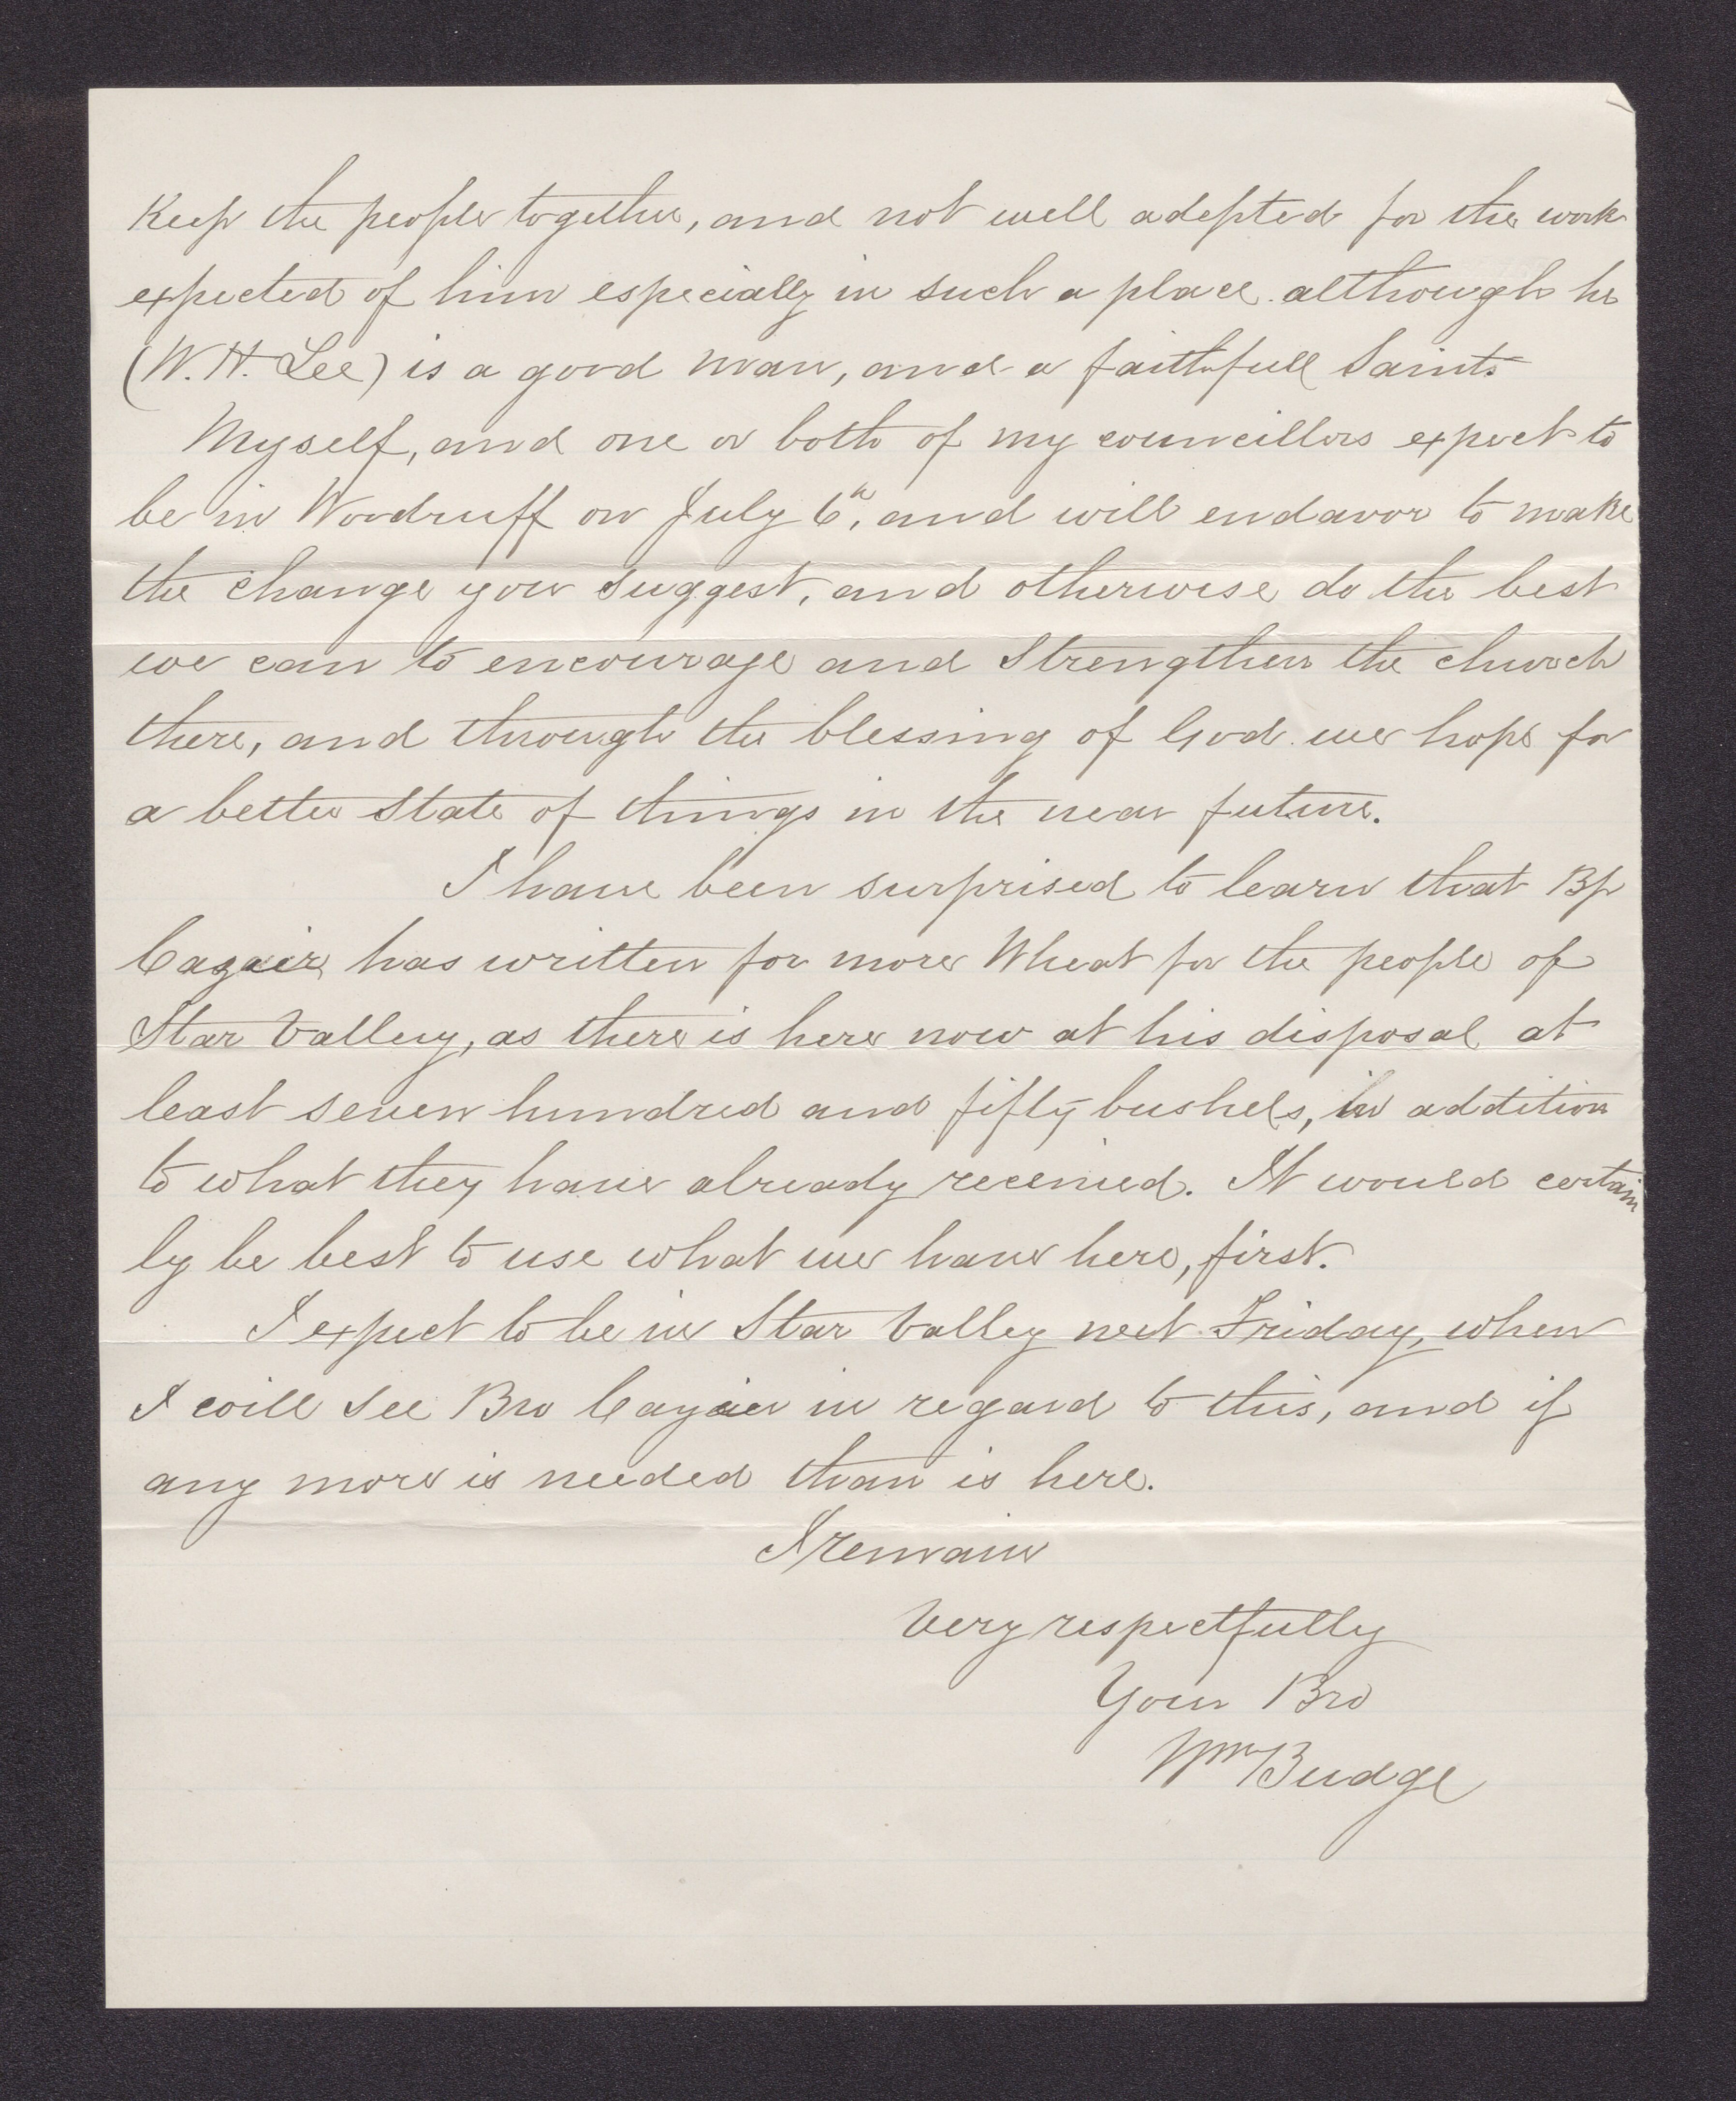 Keep the people together, and not well adepted for the work
expected of him especially in such a place. although he
(W. H. Lee) is a good man, and a faithfull Saint.
Myself, and one or both of my councillors expect to
be in Woodruff on July 6th, and will endavor to make
the change you suggest, and otherwise do the best
we can to encourage and strengthen the church
there, and through the blessing of God we hope for
a better State of things in the near future.
I have been surprised to learn that Bp
has written for more Wheat for the people of
Star Valley, as there is here now at his disposal at
least seven hundred and fifty bushels, in addition
to what they have already received. It would certain
ly be best to use what we have here, first.
I expect to be in Star Valley next Friday, when
I will see Bro in regard to this, and if
any more is needed than is here.
I remain
Very respectfully
Your Bro
Wm Budge